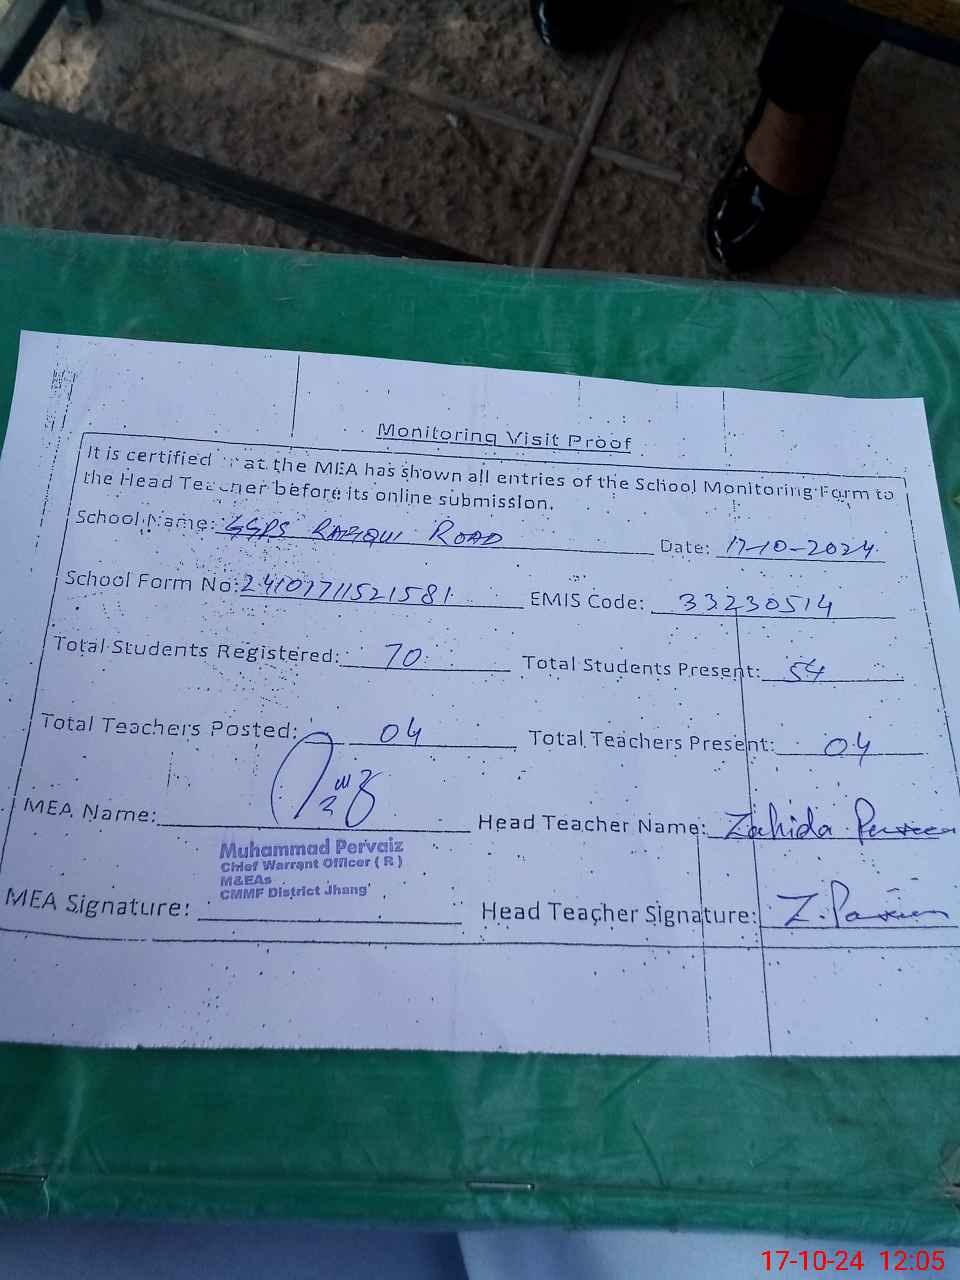 Monitoring Visit Proof
It is certified that the MEA has shown all entries of the School Monitoring Form to
the Head Teacher before its online submission.
School Name: GGPS RAFIQUI ROAD Date: 17-10-2024
School Form No: 24101711521581 EMIS Code: 33230514
Total Students Registered: 70 Total Students Present: 54
Total Teachers Posted: 04 Total Teachers Present: 04
MEA Name: Head Teacher Name: Zahida Perveen
Muhammad Pervaiz
Chief Warrant Officer ( R )
M&EAs
CMMF District Jhang
MEA Signature: Head Teacher Signature: Z. Parveen
17-10-24 12:05